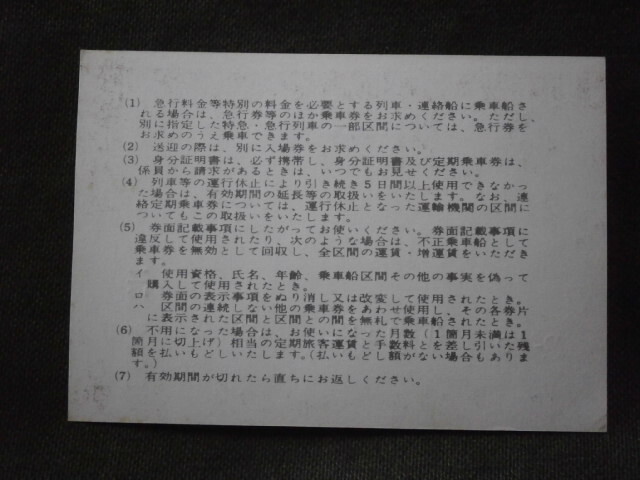 (1) 急行料金等特別の料金を必要とする列車・連絡船に乗車船さ
れる場合は、急行券等のほか乗車券をお求めください。ただし、
別に指定した特急・急行列車の一部区間については、急行券を
お求めのうえ乗車できます。
(2) 送迎の際は、別に入場券をお求めください。
(3) 身分証明書は、必ず携帯し、身分証明書及び定期乗車券は、
係員から請求があるときは、いつでもお見せください。
(4) 列車等の運行休止により引き続き5日間以上使用できなかっ
た場合は、有効期間の延長等の取扱いをいたします。なお、連
絡定期乗車券については、運行休止となった運輸機関の区間に
ついてもこの取扱いをいたします。
(5) 券面記載事項にしたがってお使いください。券面記載事項に
違反して使用されたり、次のような場合は、不正乗車船として
乗車券を無効として回収し、全区間の運賃・増運賃をいただき
ます。
イ 使用資格、氏名、年齢、乗車船区間その他の事実を偽って
購入して使用されたとき。
ロ 券面の表示事項をぬり消し又は改変して使用されたとき。
ハ 区間の連続しない他の乗車券をあわせ使用し、その各券片
に表示された区間と区間との間を無札で乗車船されたとき。
(6) 不用になった場合は、お使いになった月数(1箇月未満は1
箇月に切上げ)相当の定期旅客運賃と手数料とを差し引いた残
額を払いもどしいたします。(払いもどし額がない場合もありま
す。)
(7) 有効期間が切れたら直ちにお返しください。